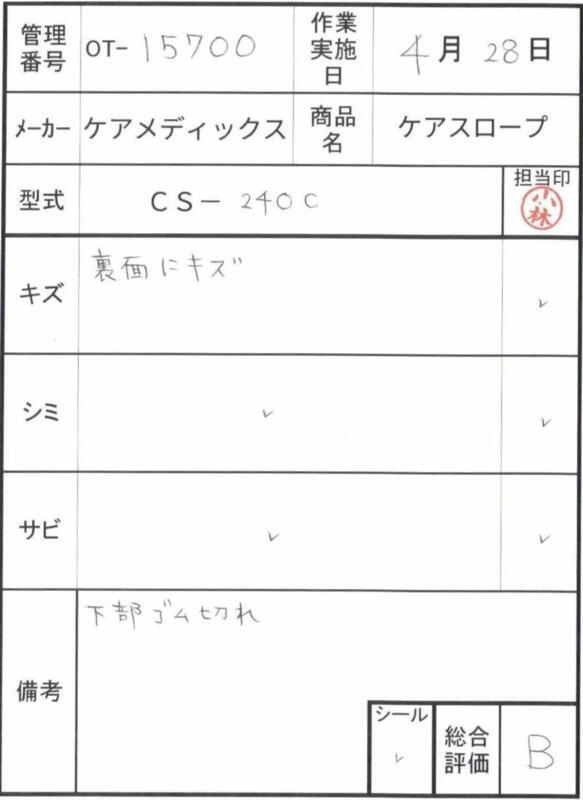 管理番号 OT-15700 作業実施日 4月28日
メーカー ケアメディックス 商品名 ケアスロープ
型式 CS-240C 担当印 小林
キズ 裏面にキズ ✓
シミ ✓ ✓
サビ ✓ ✓
備考 下部ゴム切れ
シール ✓ 総合評価 B